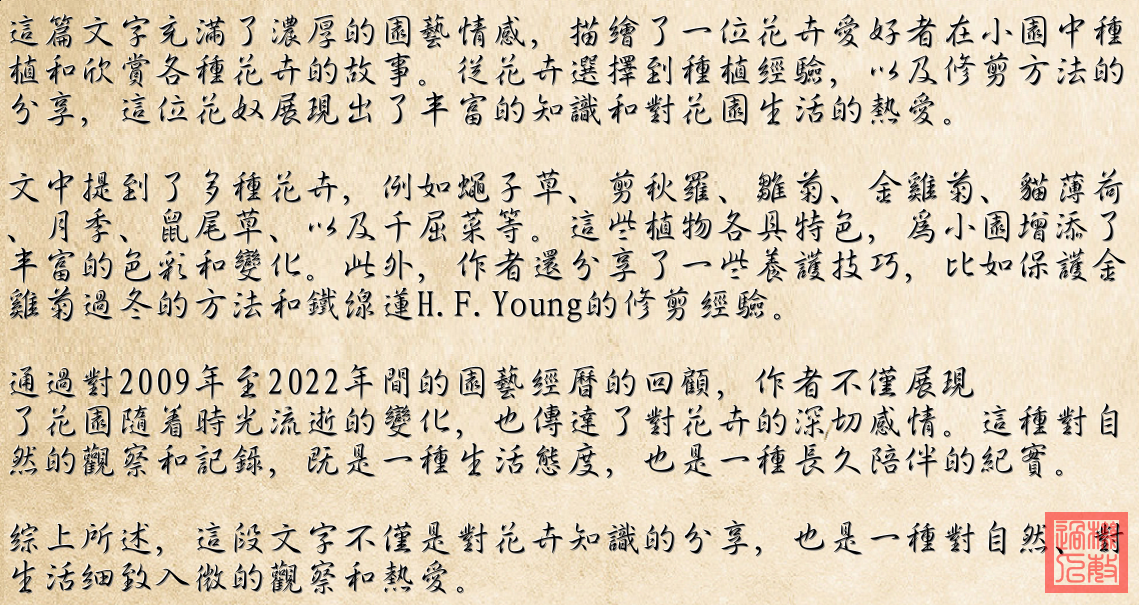 這篇文字充滿了濃厚的園藝情感，描繪了一位花卉愛好者在小園中種
植和欣賞各種花卉的故事。從花卉選擇到種植經驗，以及修剪方法的
分享，這位花奴展現出了丰富的知識和對花園生活的熱愛。
文中提到了多種花卉，例如蠅子草、剪秋羅、雛菊、金雞菊、貓薄荷
、月季、鼠尾草、以及千屈菜等。這些植物各具特色，為小園增添了
丰富的色彩和變化。此外，作者還分享了一些養護技巧，比如保護金
雞菊過冬的方法和鐵線蓮H.F.Young的修剪經驗。
通過對2009年至2022年間的園藝經曆的回顧，作者不僅展現
了花園隨着時光流逝的變化，也傳達了對花卉的深切感情。這種對自
然的觀察和記錄，既是一種生活態度，也是一種長久陪伴的紀實。
綜上所述，這段文字不僅是對花卉知識的分享，也是一種對自然、對
生活細致入微的觀察和熱愛。